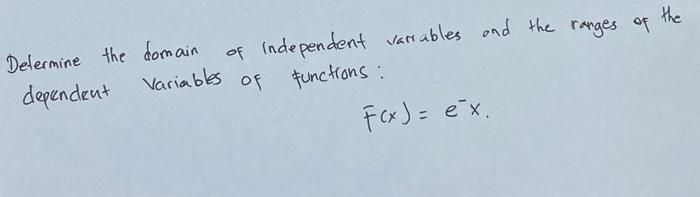 Determine the domain of Independent variables and the ranges of the
dependent Variables of functions:
F(x) = e⁻x.